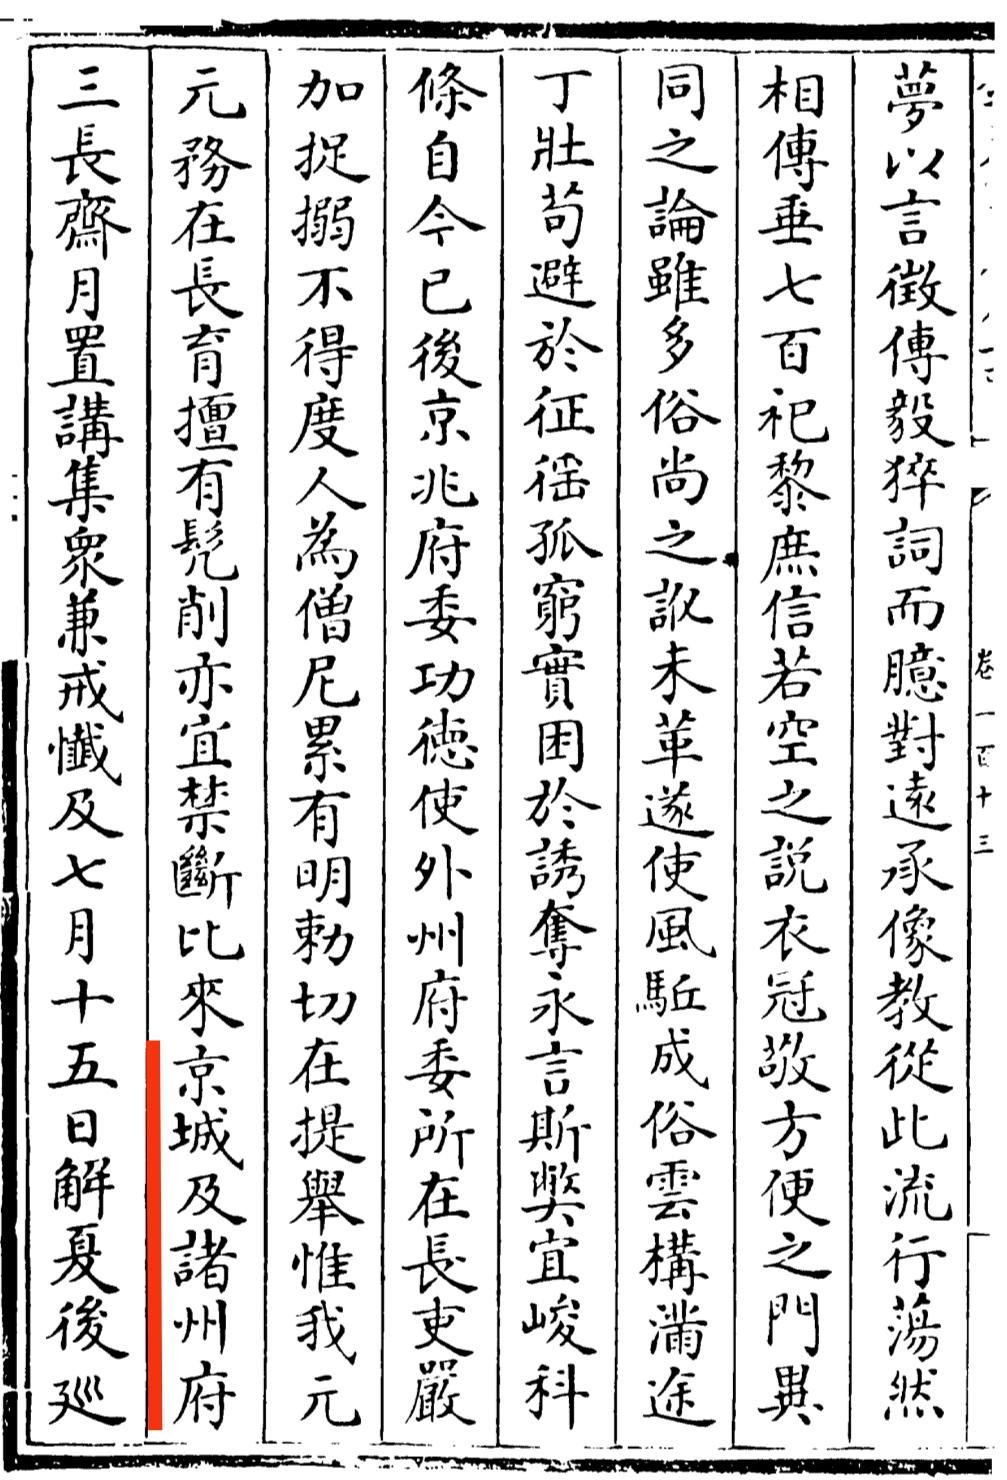 卷一百十三
夢以言徵傅毅猝詞而臆對遠承像教從此流行蕩然
相傳垂七百祀黎庶信若空之説衣冠敬方便之門異
同之論雖多俗尚之訛未革遂使風駈成俗雲構滿途
丁壯苟避於征徭孤窮實困於誘奪永言斯弊宜峻科
條自今已後京兆府委功徳使外州府委所在長吏嚴
加捉搦不得度人為僧尼累有明勅切在提舉惟我元
元務在長育擅有髠削亦宜禁斷比來京城及諸州府
三長齋月置講集衆兼戒懺及七月十五日解夏後廵